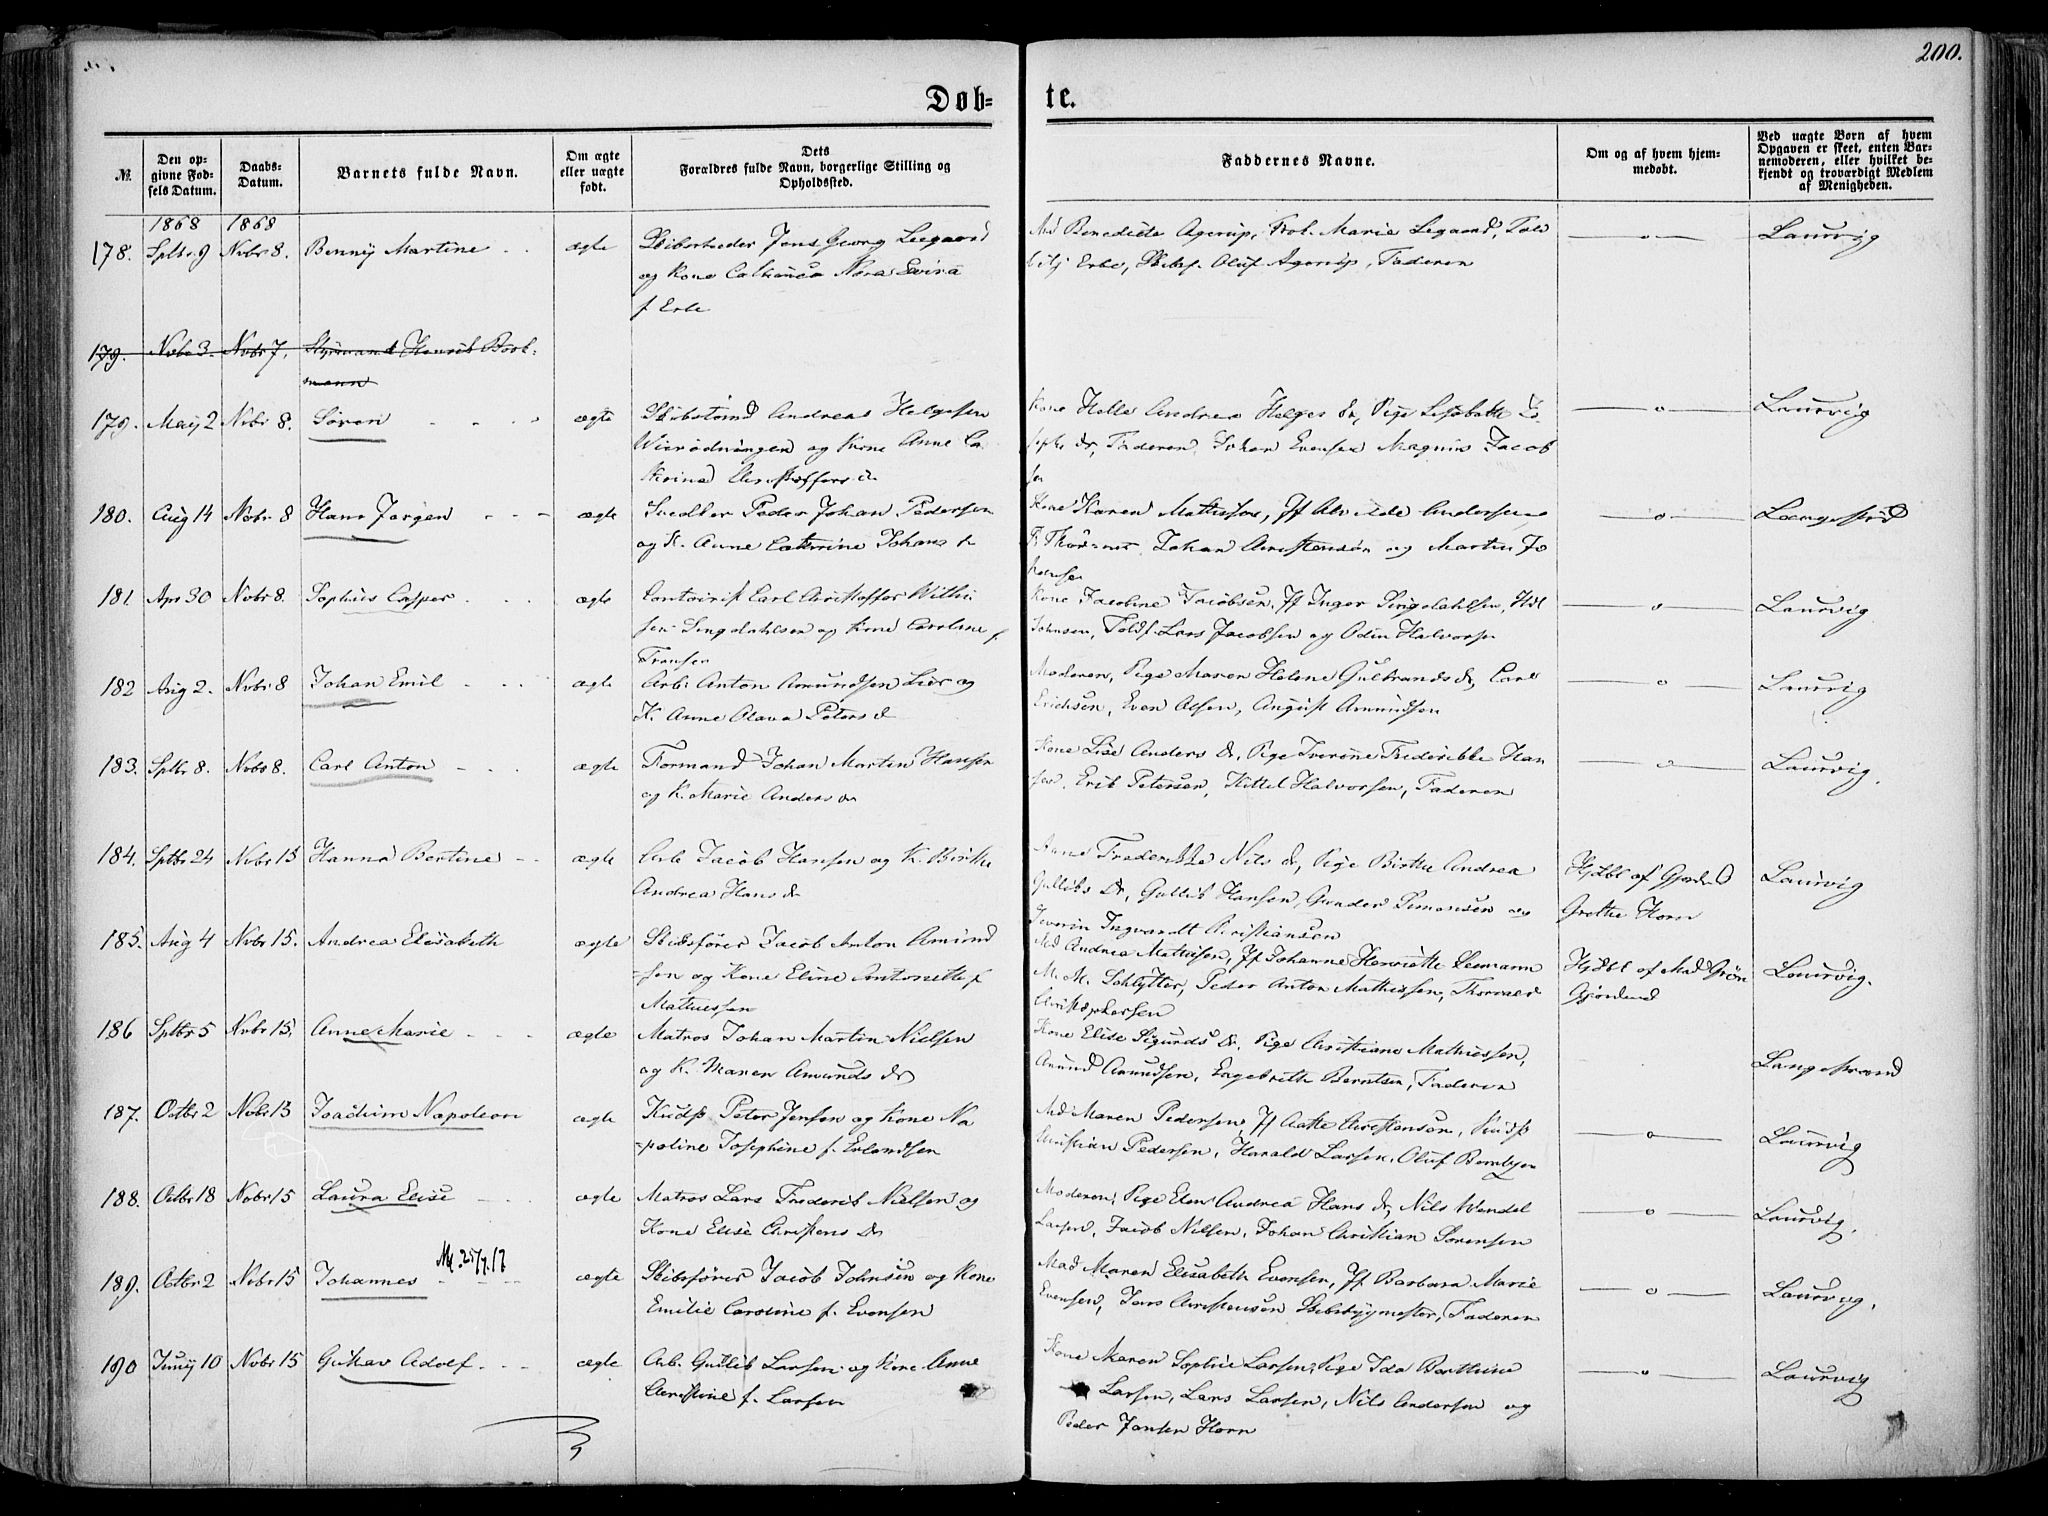 200.
Døb-
te.
№
Den op-
givne Fød-
sels Datum.
Daabs-
Datum.
Barnets fulde Navn.
Om ægte
eller uægte
født.
Dets
Forældres fulde Navn, borgerlige Stilling og
Opholdssted.
Faddernes Navne.
Om og af hvem hjem-
medøbt.
Ved uægte Børn af hvem
Opgaven er skeet, enten Bar-
nemoderen, eller hvilket be-
kjendt og troværdigt Medlem
af Menigheden.
1868 1868
178. Sptbr 9 Novbr 8. Benny Martine - - ægte Jens Georg Leegaard
og Kone Cathinca Nora
f Erbe
Md Benedicte Agerup, Frøk. Marie Legaard, Told
Erbe, Skibsf. Oluf Agerup, Faderen
—o— Laurvig
179. Novbr 3. Novbr 7. Styrmand Henrik
mann
179. May 2 Novbr 8. Søren - - - ægte Skibstømd Andreas Helgesen
og Kone Anne Ca-
Christoffers d
Kone Helle Andrea Helges dr, Pige Lisabeth Jo-
sephs dr, Faderen, Johan Evensen Magnus Jacob
sen
—o— Laurvig
180. Aug 14 Novbr 8 Hans Jørgen - - - ægte Snedker Peder Johan Pedersen
og K. Anne Cathrine Johans d
Kone Karen Mathisson, Jf Andersen
Johan Christensen og Martin Jo
hansen
—o— Langestrd
181. Apr 30 Novbr 8. Sophus Casper - - - ægte Contorist Carl Christoffer Wilhi
sen Singdahlsen og Kone Caroline f
Fransen
Kone Jacobine Jacobsen, Jf Inger Singdahlsen,
Johnsen, Toldf. Lars Jacobsen og Odin Halvorsen
—o— Laurvig
182 Aug 2. Novbr 8 Johan Emil - - - ægte Arb. Anton Amundsen Lier og
K. Anne Olava Peters d
Moderen, Pige Maren Helene Gulbrands dr, Carl
Erichsen, Even Olsen, August Amundsen
—o— Laurvig
183. Sptbr 8. Novbr 8. Carl Anton - - - ægte Formand Johan Martin Hansen
og K. Marie Anders dr
Kone Lise Anders dr, Pige Iverine Frederikke Han
sen, Erik Petersen, Kittel Halvorsen, Faderen
—o— Laurvig.
184. Sptbr 24 Novbr 15 Hanna Bertine - - ægte Arb Jacob Hansen og K. Birthe
Andrea Hans dr
Anne Frederikke Nils dr, Pige Birthe Andrea
Gullibs dr, Gullib Hansen, Gunder Simonsen og
Iverin Ingvardt Kristiansen
Hjdbt af Gjord.
Grethe Horn
Laurvig
185. Aug 4 Novbr 15. Andrea Elisabeth ægte Skibsfører Jacob Anton Amund
-sen og Kone Eline Antonette f
Mathiessen
Md Andrea Mathisen, Jf Johanne Henriette Seemann
M. M. Schlytter, Peder Anton Mathissen, Thorvald
Christophersen
Hjdbt af Mad Grøn
Gjordmd
Laurvig.
186 Sptbr 5 Novbr 15. Anne Marie - - - ægte Matros Johan Martin Nielsen
og K. Maren Amunds dr
Kone Elise Sigurds dr. Pige Christiane Mathiessen,
Amund Amundsen, Engebreth Berntsen, Faderen
Langestrand
187. Octbr 2 Novbr 15 Joachim Napoleon ægte Peter Jensen og Kone Na
-poline Josephine f. Erlandsen
Md Maren Pedersen, Jf Aatte Christensen,
Christian Pedersen, Harald Larsen, Oluf Bernhjen
—o— Laurvig
188. Octbr 18 Novbr 15 Laura Elise - - - ægte Matros Lars Frederik Nielsen og
Kone Elise Christens dr
Moderen, Pige Elen Andrea Hans dr, Nils Wendel
Larsen, Jacob Nilsen, Johan Christian Sørensen
—o— Laurvig.
189. Octbr 2 Novbr 15 Johannes - - - M. 25/7.17 ægte Skibsfører Jacob Johnsen og Kone
Emilie Caroline f. Evensen
Mad Maren Elisabeth Evensen, Jf Barbara Marie
Evensen, Jens Christensen Skibsbygmester, Faderen
—o— Laurvig.
190 Juny 10 Novbr 15 Gustav Adolf - - - ægte Arb. Gullib Larsen og Kone Anne
Christine f. Larsen
Kone Maren Sophie Larsen, Pige Ida Berthine
Larsen, Lars Larsen, Nils Andersen og
Peder Jansen Horn
—o— Laurvig